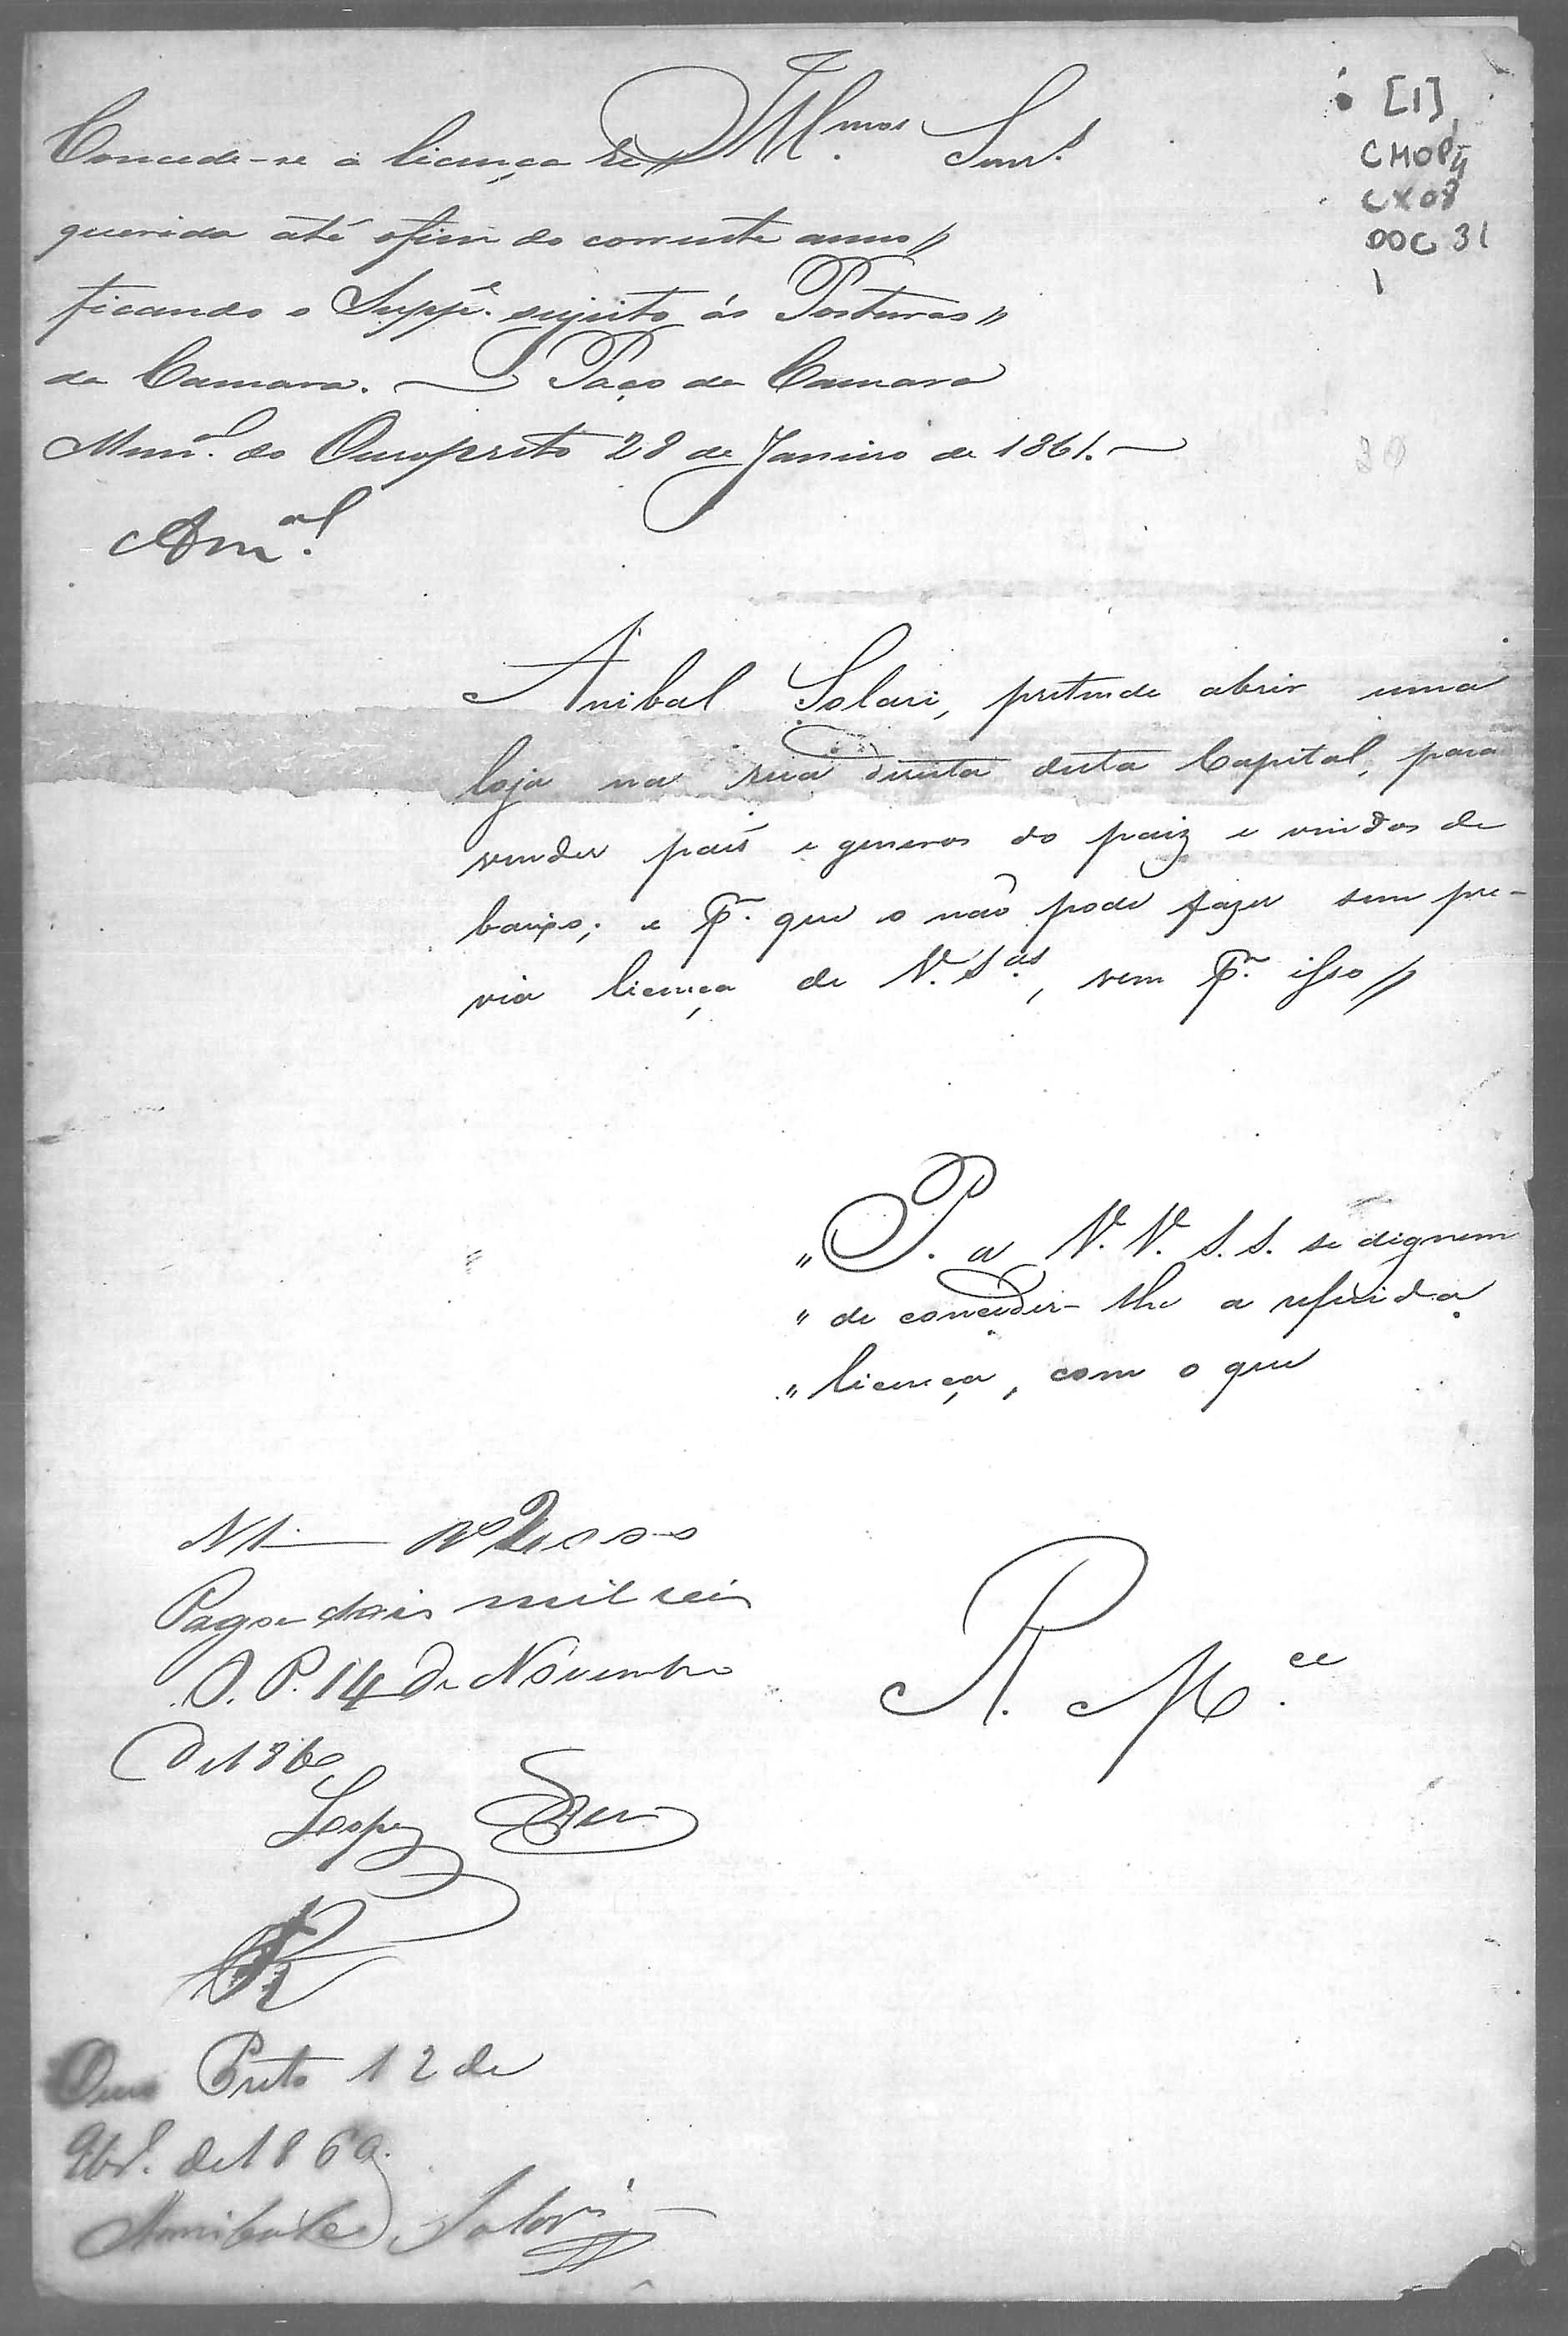 [1]
CMOP
CX 08
DOC 31
1
30
Ill.mos Snr.s
Concede-se a licença re//
querida até o fim do corrente anno//
ficando o Supp.e sujeito ás Posturas//
da Camara. Paço da Camara
Mun.al do Ouropreto 28 de Janeiro de 1861.
Am.al
Anibal Solari, pretende abrir uma
loja na rua direita desta Capital, para
vender pães e generos do paiz e vindos de
baixo; e p.r que o não pode fazer sem pre-
via licença de V. S.as, vem p.r isso//
"P. a V. V. S. S. se dignem
" de conceder-lhe a referida
" licença, com o que
R. M.ce
N 1 2000
Pagou dois mil reis
O. P. 14 de Novembro
de 1860
Lopes
Ouro Preto 12 de
9br.o de 1860.
Annibale Solari